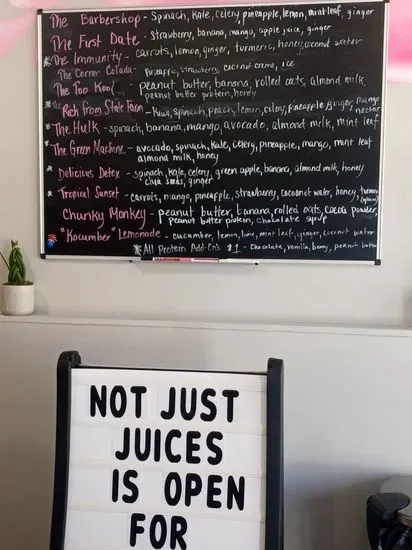 The Barbershop - Spinach, Kale, Celery, pineapple, lemon, mint leaf, ginger
The First Date - Strawberry, banana, mango, apple juice, ginger
*The Immunity - Carrots, lemon, ginger, turmeric, honey, coconut water
The Corner Colada - Pineapple, strawberry, coconut creme, ice
The Too Kool - peanut butter, banana, rolled oats, almond milk,
peanut butter protein, honey
*The Rich from State Farm - Kiwi, spinach, peach, lemon, celery, pineapple, ginger, mango
nectar
*The Hulk - spinach, banana, mango, avocado, almond milk, mint leaf
*The Green Machine - avocado, spinach, Kale, celery, pineapple, mango, mint leaf
almond milk, honey
*Delicious Detox - spinach, kale, celery, green apple, banana, almond milk, honey
chia seeds, ginger
*Tropical Sunset - carrots, mango, pineapple, strawberry, coconut water, honey, turmeric
Chunky Monkey - peanut butter, banana, rolled oats, cocoa powder,
peanut butter protein, chocolate syrup
"Kocumber" Lemonade - cucumber, lemon, lime, mint leaf, ginger, coconut water
*All Protein Add-On's $1 - Chocolate, vanilla, berry, peanut butter
NOT JUST
JUICES
IS OPEN
FOR